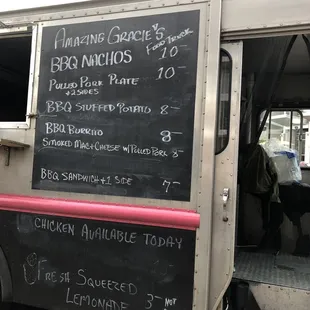 Amazing Gracie's
Food Truck
BBQ Nachos 10-
Pulled Pork Plate 10-
+2 Sides
BBQ Stuffed Potato 8-
BBQ Burrito 8-
Smoked Mac+Cheese w/ Pulled Pork 3-
BBQ Sandwich + 1 Side 7-
Chicken Available Today
Fresh Squeezed
Lemonade 3- Not